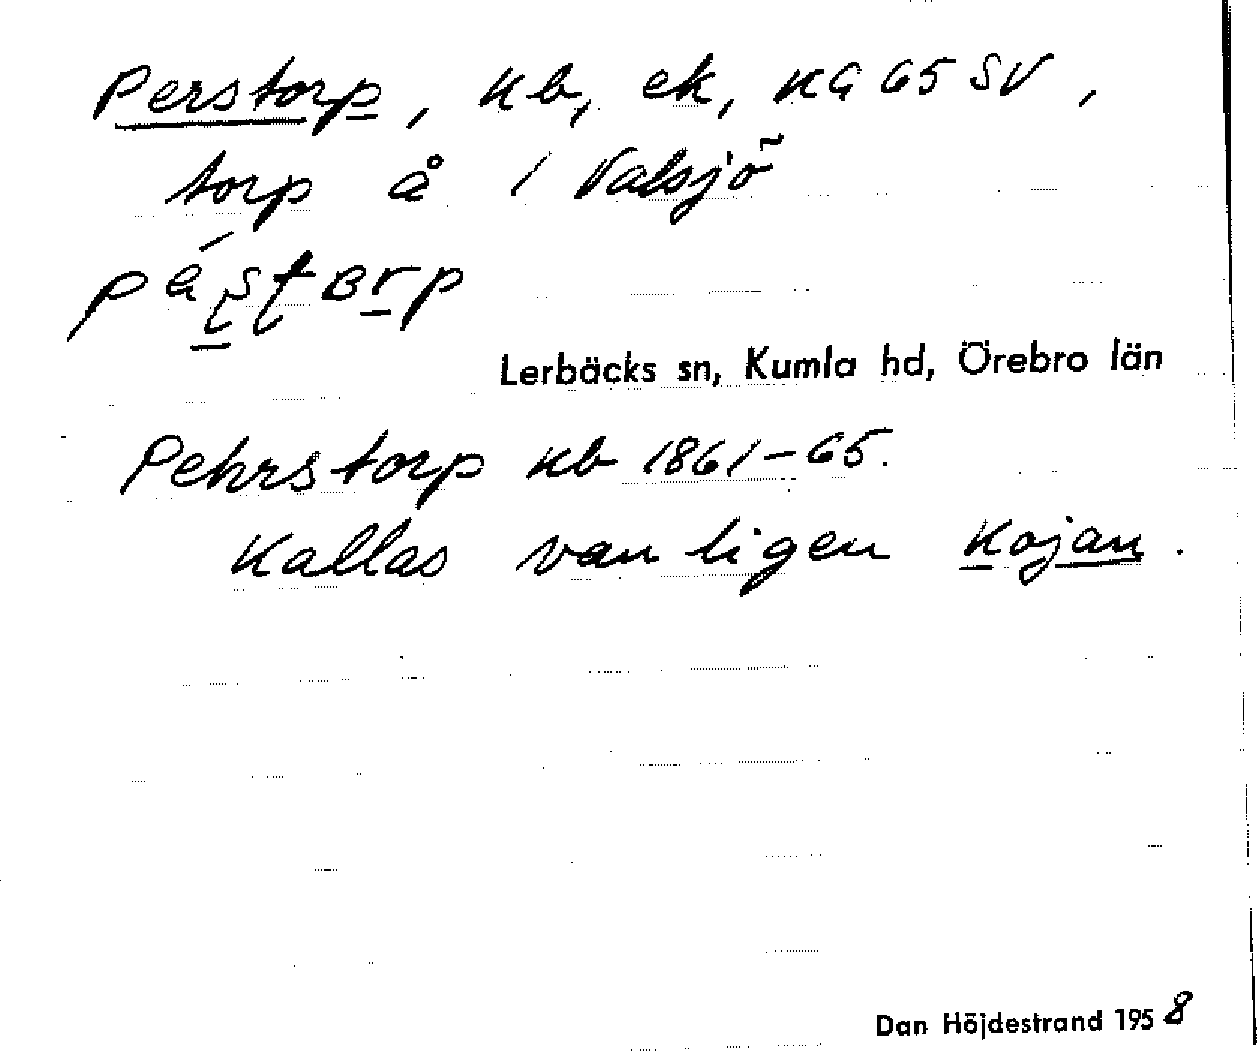 Perstorp, kb, ek, KG 65 SV,
torp å 1 Valsjö
Lerbäcks sn, Kumla hd, Örebro län
Pehrstorp kb 1861–65.
Kallas vanligen Kojan.
Dan Höjdestrand 1958